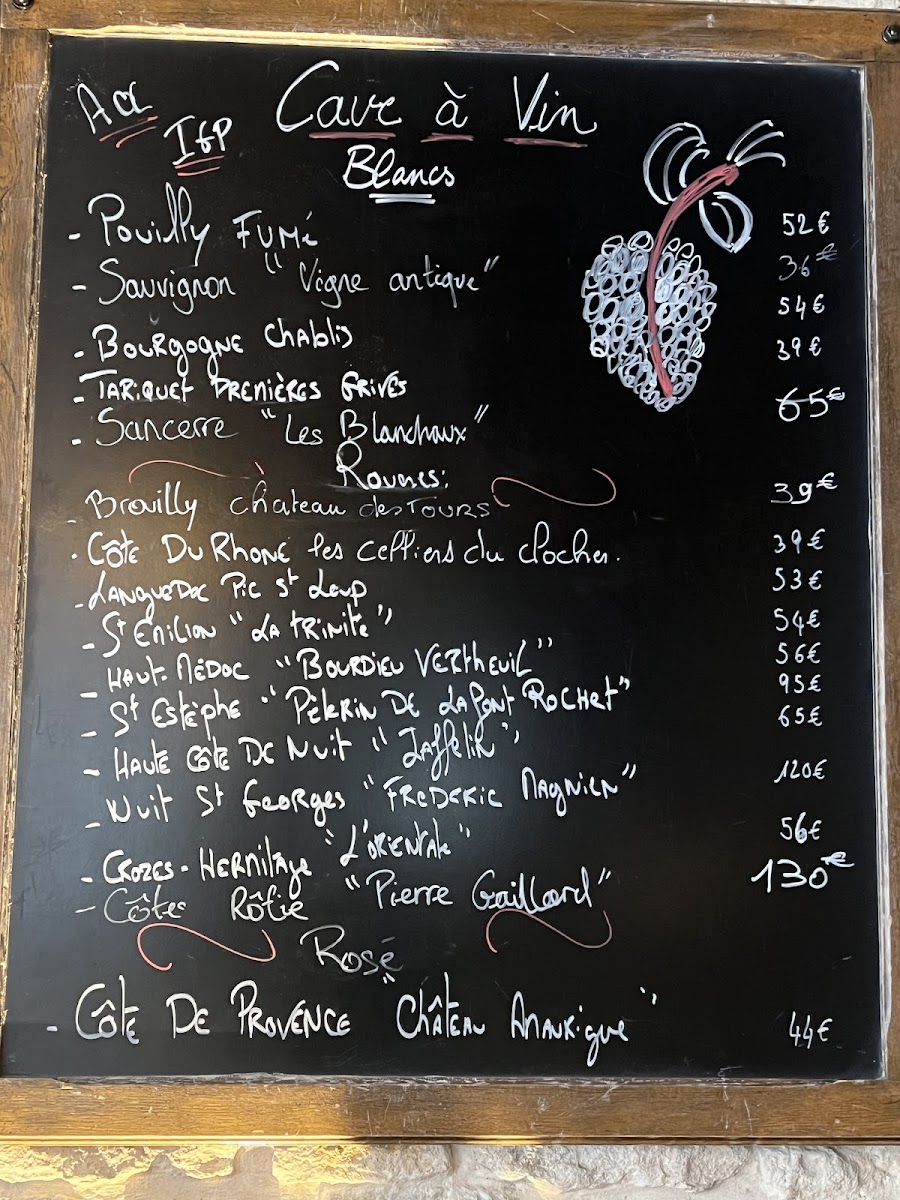 Acl
IGP
Cave à Vin
Blancs
- Pouilly FUMé 52€
- Sauvignon "Vigne antique" 36€
- BOURgOgNE Chablis 54€
- TARIQUET PREMIÈRES GRIVES 39€
- Sancerre "Les Blanchaux" 65€
Rouges:
- Brouilly château des Tours 39€
- CÔTE DU RHONE les celliers du clocher. 39€
- LANGUEDOC PIC St LOUP 53€
- St EMILION "LA TRINITE" 54€
- HAUT-MÉDOC "BOURDIEU VERTHEUIL" 56€
- St ESTÈPHE "PÈLERIN DE LAFONT ROCHET" 95€
- HAUTE CÔTE DE NUIT "Jaffelin" 65€
- NUIT St GEORGES "FREDERIC MAGNIEN" 120€
- CROZES-HERMITAGE "L'ORIENTALE" 56€
- Côtes Rôtie "Pierre Gaillard" 130€
Rosé
- CÔTE DE PROVENCE "Château" 44€